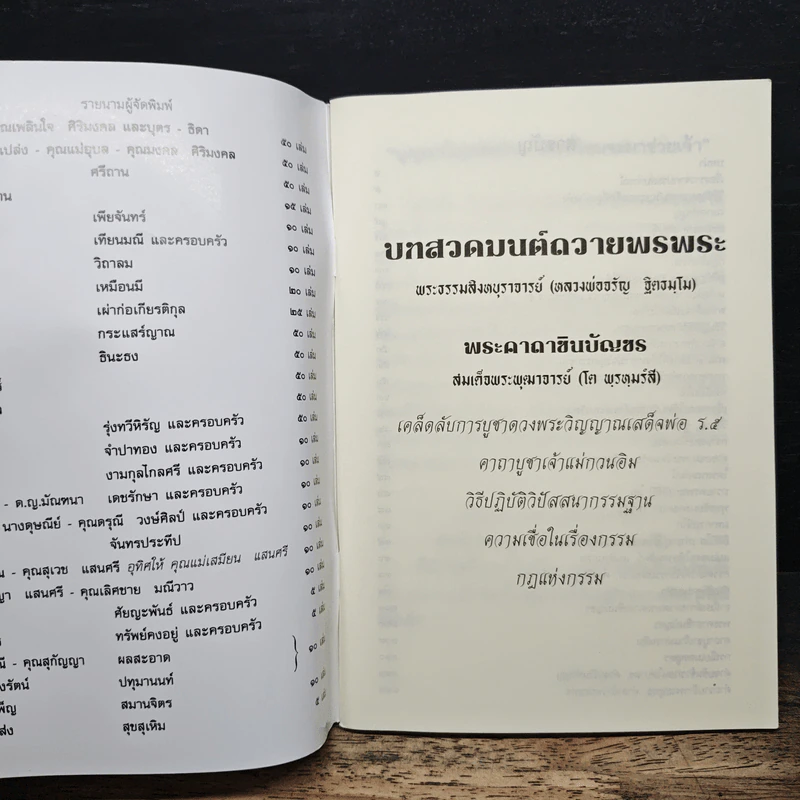 รายนามผู้จัดพิมพ์
ศิริมงคล และบุตร - ธิดา ๕๐ เล่ม
- คุณแม่ยุบล - คุณมงคล ศิริมงคล ๕๐ เล่ม
ศรีถาน ๕๐ เล่ม
๑๕ เล่ม
เพียจันทร์ ๑๐ เล่ม
เทียนมณี และครอบครัว ๑๐ เล่ม
วิถาลม ๑๐ เล่ม
เหมือนมี ๒๐ เล่ม
เผ่าก่อเกียรติกุล ๒๕ เล่ม
กระแสร์ญาณ ๕๐ เล่ม
ธินะธง ๕๐ เล่ม
๕๐ เล่ม
๕๐ เล่ม
รุ่งทวีหิรัญ และครอบครัว ๕๐ เล่ม
จำปาทอง และครอบครัว ๑๐ เล่ม
งามกุลไกลศรี และครอบครัว ๑๐ เล่ม
- ด.ญ.มัณฑนา เดชรักษา และครอบครัว ๑๐ เล่ม
นางดุษณีย์ - คุณดรุณี วงษ์ศิลป์ และครอบครัว ๑๐ เล่ม
จันทรประทีป ๑๐ เล่ม
- คุณสุเวช แสนศรี อุทิศให้ คุณแม่เสมียน แสนศรี ๑๐ เล่ม
แสนศรี - คุณเลิศชาย มณีวาว ๕ เล่ม
ศัยญะพันธ์ และครอบครัว ๕ เล่ม
ทรัพย์คงอยู่ และครอบครัว
- คุณสุกัญญา ผลสะอาด ๑๐ เล่ม
ปทุมานนท์ ๑๐ เล่ม
สมานจิตร ๕ เล่ม
สุขสุเหิม
บทสวดมนต์ถวายพรพระ
พระธรรมสิงหบุราจารย์ (หลวงพ่อจรัญ ฐิตธมฺโม)
พระคาถาชินบัญชร
สมเด็จพระพุฒาจารย์ (โต พฺรหฺมรํสี)
เคล็ดลับการบูชาดวงพระวิญญาณเสด็จพ่อ ร.๕
คาถาบูชาเจ้าแม่กวนอิม
วิธีปฏิบัติวิปัสสนากรรมฐาน
ความเชื่อในเรื่องกรรม
กฎแห่งกรรม